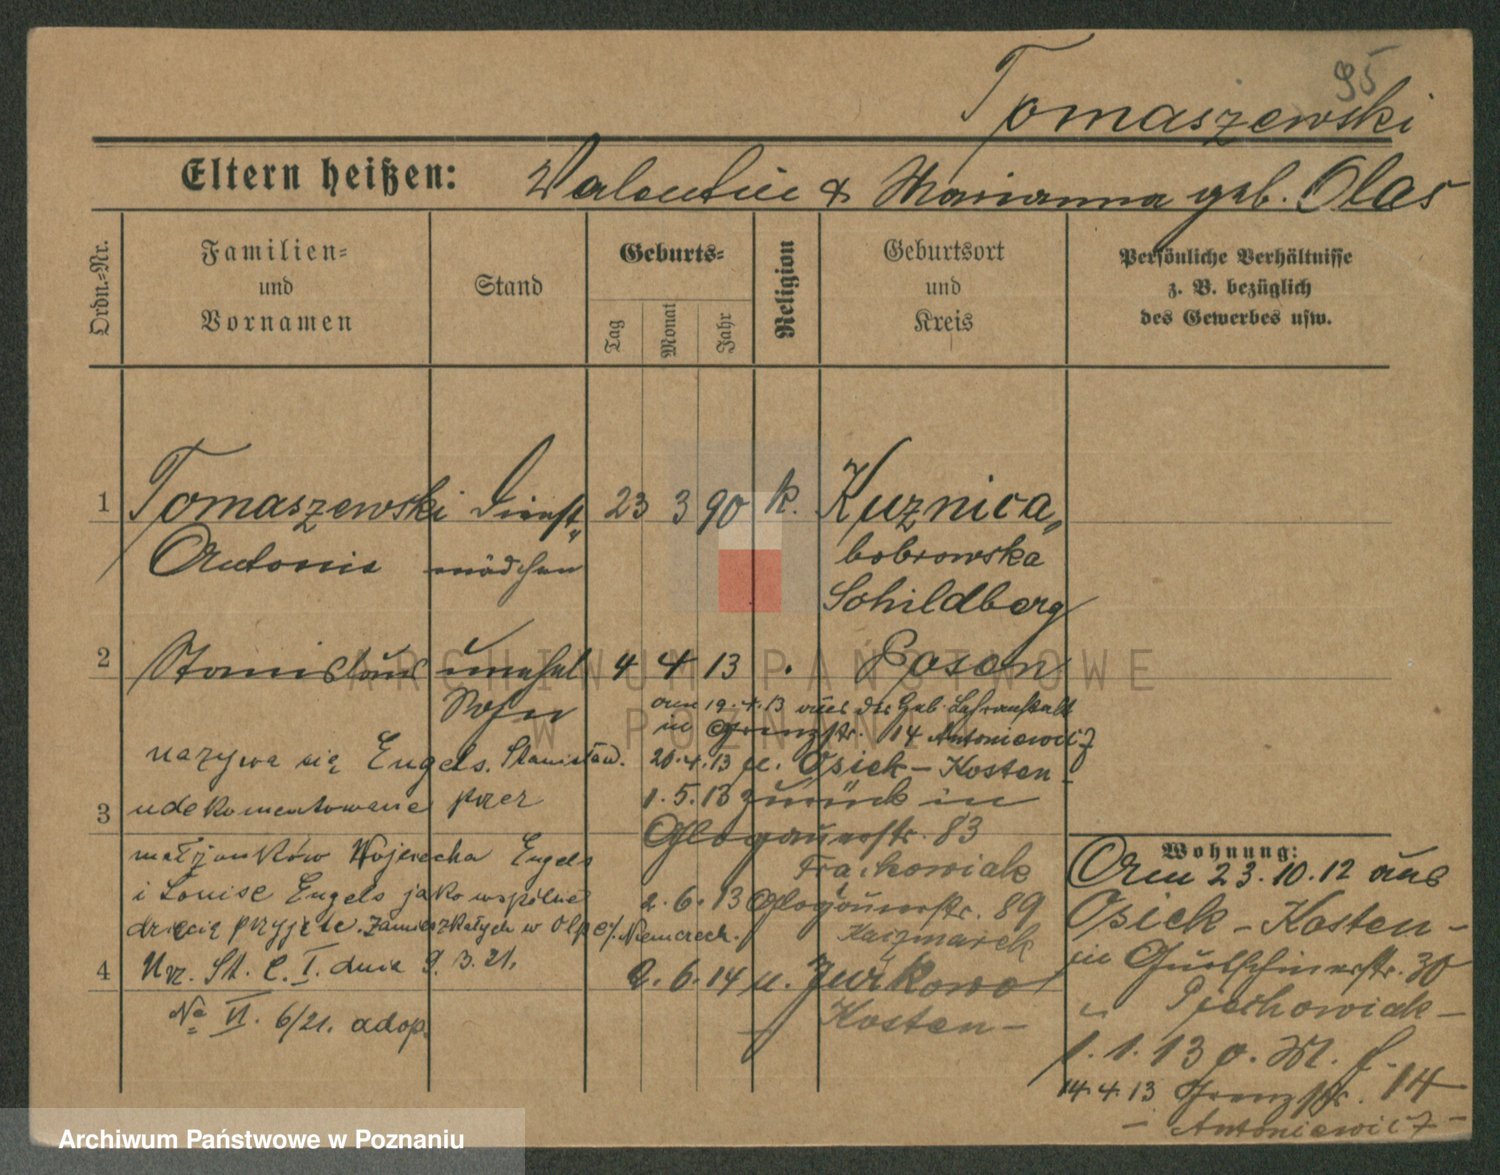 95
Tomaszewski
Eltern heißen: Valentin & Marianna geb. Olas
Ordn.-Nr.
Familien-
und
Vornamen
Stand
Geburts-
Tag
Monat
Jahr
Religion
Geburtsort
und
Kreis
Persönliche Verhältnisse
z. B. bezüglich
des Gewerbes usw.
1 Tomaszewski Dienst- 23 3 90 k. Kuznica-
Antonie mädchen bobrowska
Schildberg
2 Stanislaus unehel 4 4 13 Posen
Sohn
am 19.4.13 aus der Heb. Lehranstalt
in Grenzstr. 14 Antoniewicz
20.4.13 n. Osiek - Kosten -
1.5.13 zurück in
Glogauerstr. 83
Frąckowiak
2.6.13 Glogauerstr. 89
Kaczmarek
2.6.14 n. Jurkowo
Kosten -
nazywa się Engels. Stanisław.
3 udokumentowane przez
małżonków Wojciecha Engels
i Louise Engels jako wspólne
dziecię przyjęte. Zamieszkałych w Olpe /. Niemczech.
4 Urz. St. C. I. dnia 9. 3. 21.
No VI. 6/21. adop.
Wohnung:
Am 23.10.12 aus
Osiek - Kosten -
in Gurtschinerstr. 30
Piechowiak -
1.1.13 o. M. f.
14.4.13 Grenzstr. 14
- Antoniewicz -
ARCHIWUM PAŃSTWOWE
W POZNANIU
Archiwum Państwowe w Poznaniu